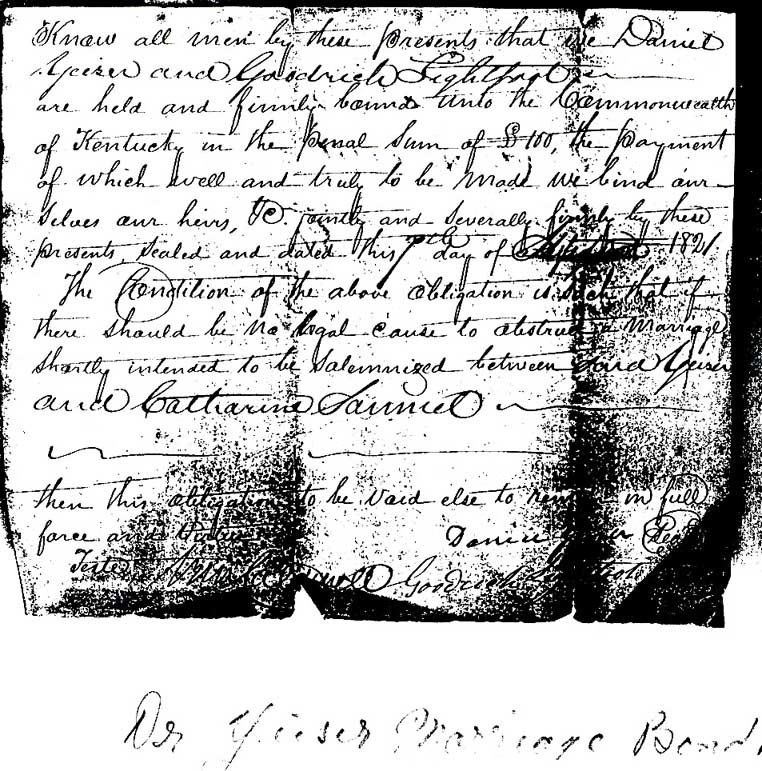 Know all men by these presents that we Daniel
Yeizer and Goodrich Lightfoot
are held and firmly bound unto the Commonwealth
of Kentucky in the penal sum of £ 100, the payment
of which well and truly to be made we bind our
selves our heirs, &c. jointly and severally firmly by these
presents, sealed and dated this 7th day of 1821.
The Condition of the above obligation is such that if
there should be no legal cause to obstruct a marriage
shortly intended to be solemnized between said Yeizer
and Catharine Samuel
then this obligation to be void else to remain in full
force and virtue
Teste Goodrich Lightfoot
Dr Yieser Marriage Bond.